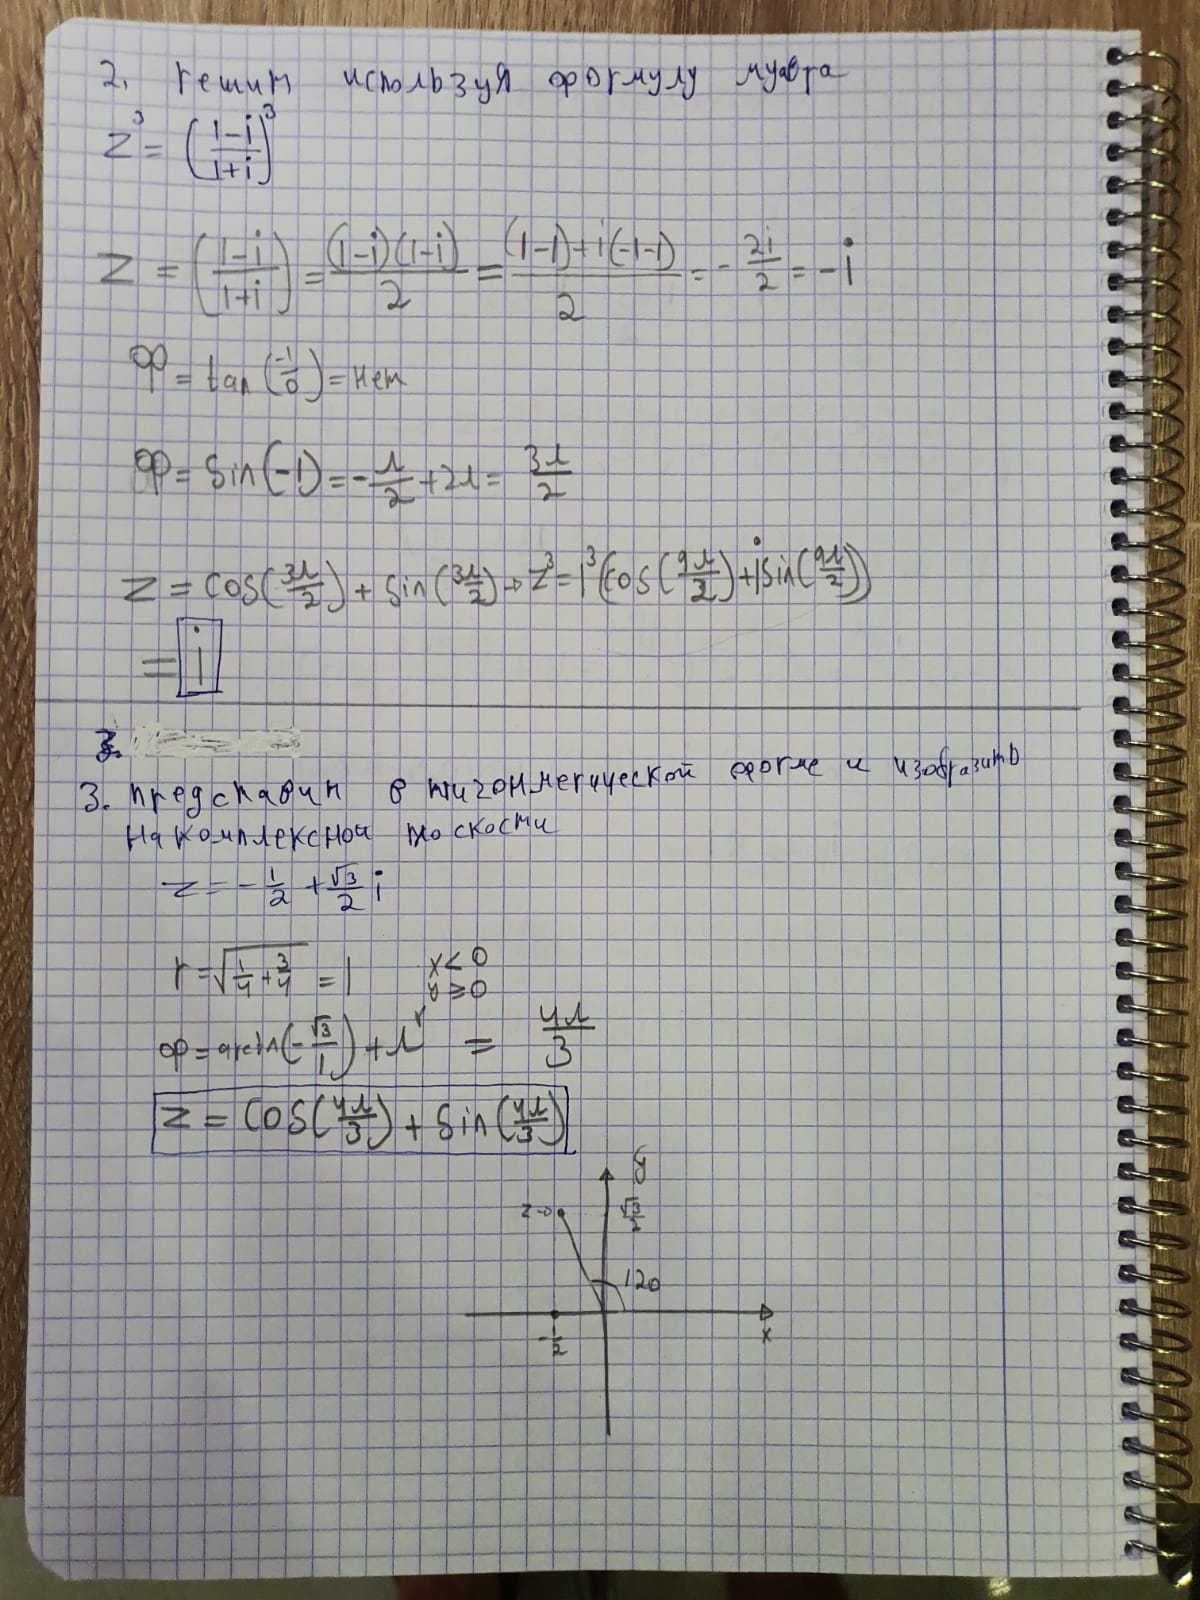 2. решит используя формулу муавра
z³ = ((1-i)/(1+i))³
z = ((1-i)/(1+i)) = ((1-i)(1-i))/2 = ((1-1)+i(-1-1))/2 = -2i/2 = -i
φ = tan(-1/0) = нет
φ = sin(-1) = -π/2 + 2π = 3π/2
z = cos(3π/2) + sin(3π/2) → z³ = 1³(cos(9π/2) + i sin(9π/2))
= i
3.
3. представит в тигонметической форме и изобразить
на комплексной плоскости
z = -1/2 + √3/2 i
r = √(1/4 + 3/4) = 1 x < 0
y ≥ 0
φ = arctn(-√3/1) + π = 4π/3
z = cos(4π/3) + sin(4π/3)
y
z → √3/2
120
-1/2 x